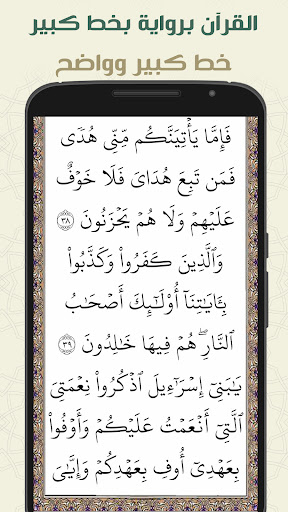 القرآن برواية بخط كبير
خط كبير وواضح
فَإِمَّا يَأْتِيَنَّكُم مِّنِّى هُدًى
فَمَن تَبِعَ هُدَاىَ فَلَا خَوْفٌ
عَلَيْهِمْ وَلَا هُمْ يَحْزَنُونَ ٣٨
وَالَّذِينَ كَفَرُوا۟ وَكَذَّبُوا۟
بِـَٔايَاتِنَآ أُو۟لَـٰٓئِكَ أَصْحَـٰبُ
ٱلنَّارِ ۖ هُمْ فِيهَا خَـٰلِدُونَ ٣٩
يَـٰبَنِىٓ إِسْرَٰٓءِيلَ ٱذْكُرُوا۟ نِعْمَتِىَ
ٱلَّتِىٓ أَنْعَمْتُ عَلَيْكُمْ وَأَوْفُوا۟
بِعَهْدِىٓ أُوفِ بِعَهْدِكُمْ وَإِيَّـٰىَ